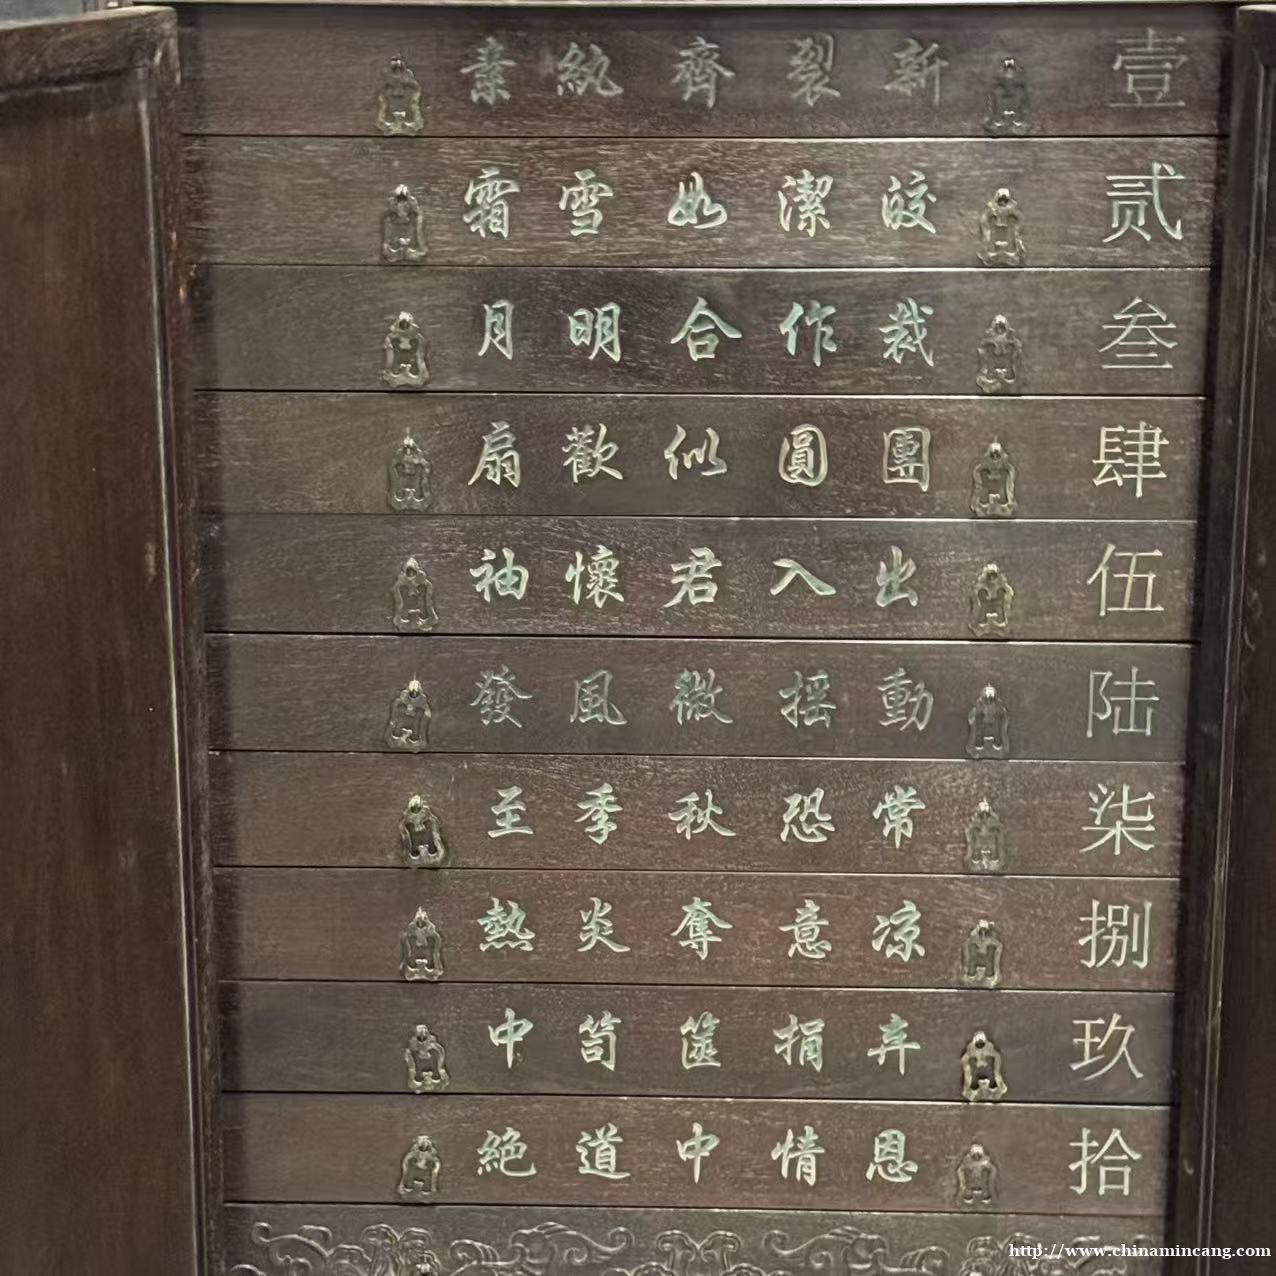 壹 新裂齊紈素
贰 皎潔如雪霜
叁 裁作合明月
肆 團圓似歡扇
伍 出入君懷袖
陆 動摇微風發
柒 常恐秋季至
捌 凉意奪炎熱
玖 弃捐篋笥中
拾 恩情中道絶
http://www.chinamincang.com